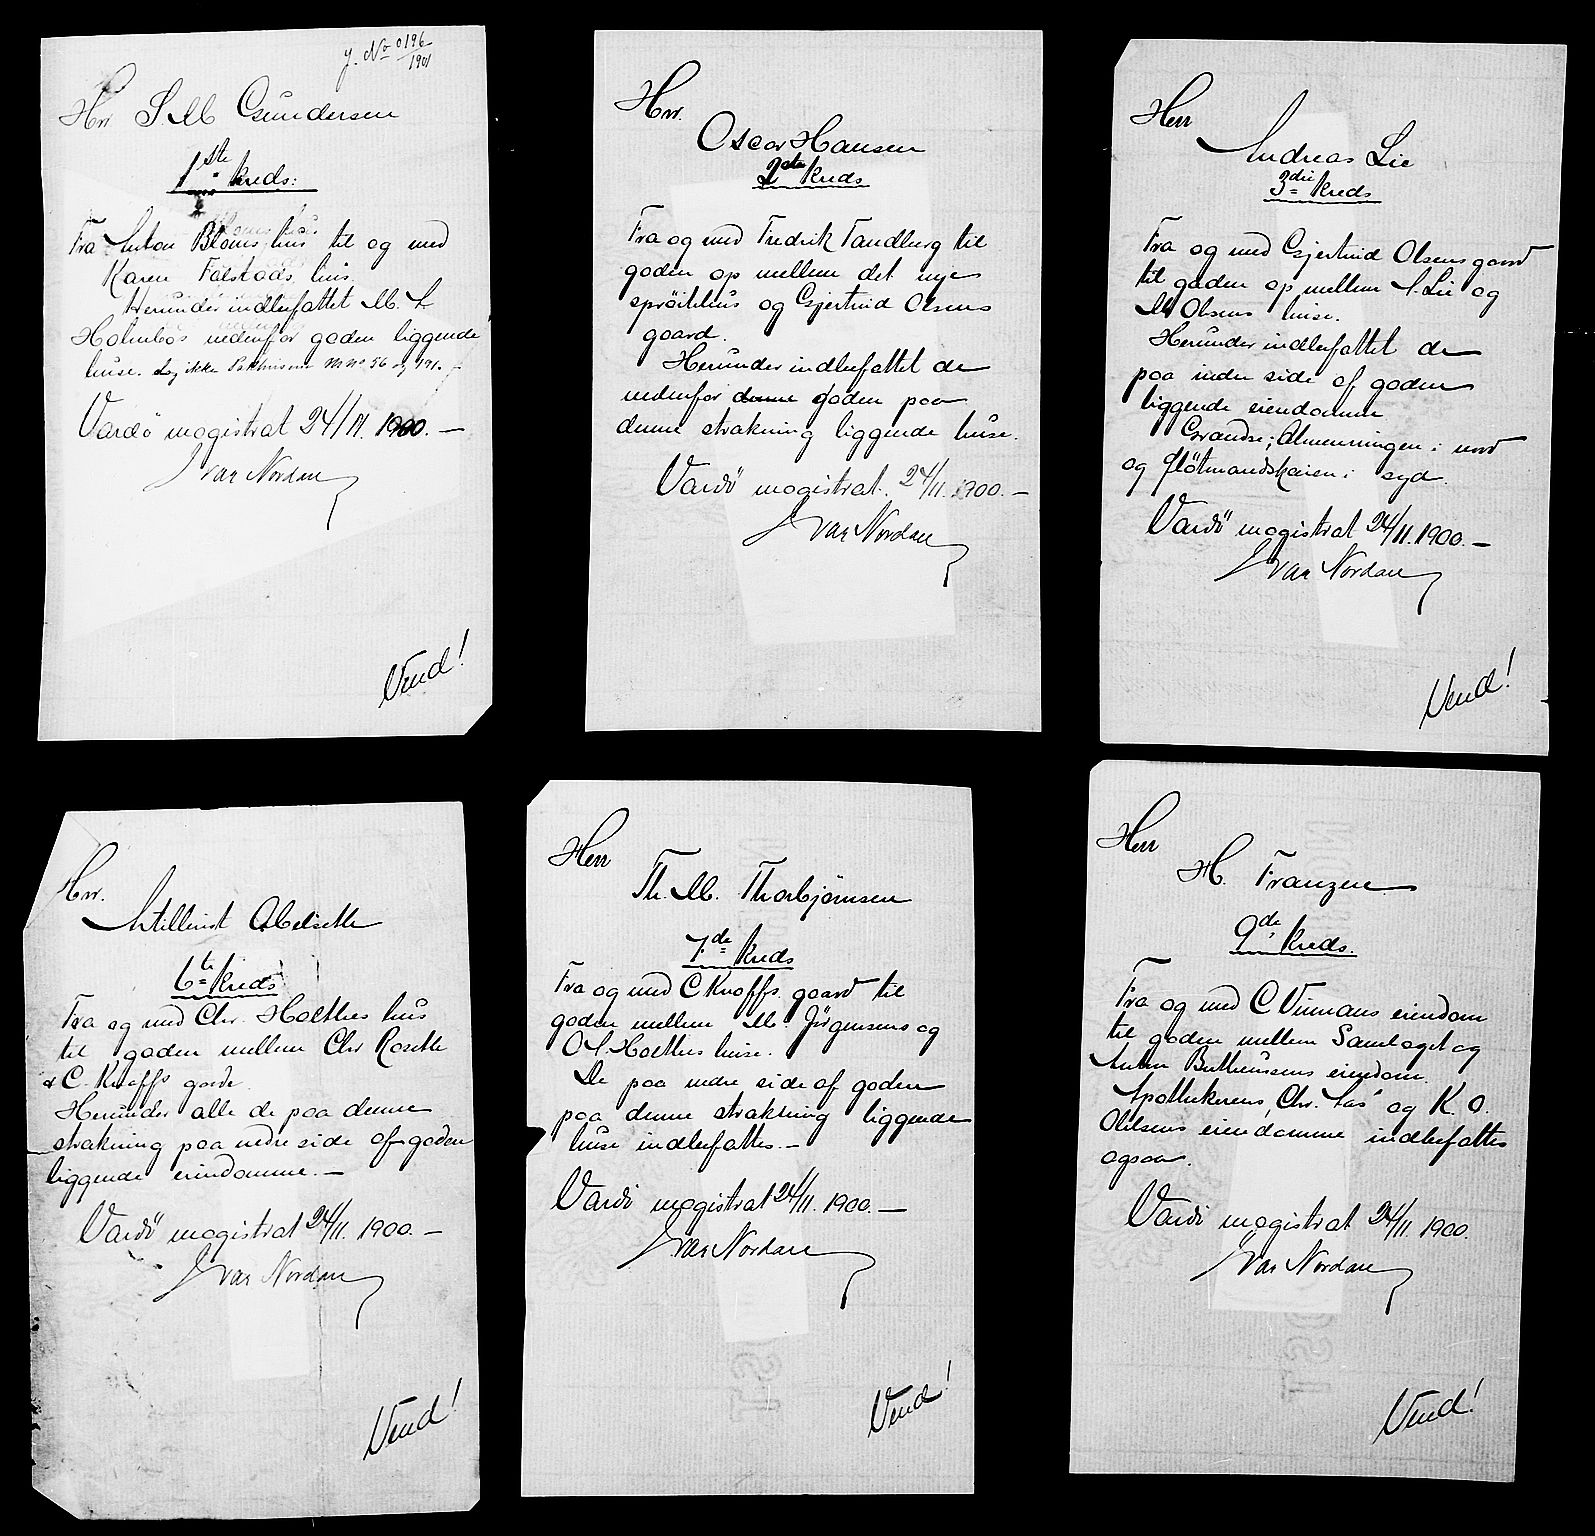 J. No 0196/1901
Hrr S. M Gundersen
1ste kreds:
Fra Anton Bloms hus til og med
Karen Falstads hus.
Herunder indbefattet M. A.
Holmbos nedenfor gaden liggende
huse. og ikke Pakhusene M No 56 og 191.
Vardö magistrat 24/11. 1900. —
Ivar Nordan
Vend!
Hrr.
Oscar Hansen
2den kreds
Fra og med Fredrik Tandberg til
gaden op mellem det nye
spröitehus og Gjertrud Olsens
gaard.
Herunder indbefattet de
nedenfor denne gaden paa
denne strækning liggende huse.
Vardö magistrat. 24/11. 1900. —
Ivar Nordan
Herr
Andreas Lie
3die kreds
Fra og med Gjertrud Olsens gaard
til gaden op mellem A. Lie og
M Olsens huse.
Herunder indbefattet de
paa nedre side af gaden
liggende eiendomme
Grændse; Almenningen i nord
og flötmandskaien i syd.
Vardö magistrat 24/11. 1900. —
Ivar Nordan
Vend!
Hrr.
Artillerist Abelseth
6te kreds
Fra og med Chr. Holthes hus
til gaden mellem Chr Roseth
& C. Knoffs gaarde.
Herunder alle de paa denne
strækning paa nedre side af gaden
liggende eiendomme. —
Vardö magistrat 24/11. 1900. —
Ivar Nordan
Vend!
Herr
Th. M. Thorbjörnsen
7de kreds
Fra og med C Knoffs gaard til
gaden mellem M. Jörgensens og
O. A. Holthes huse.
De paa nedre side af gaden
paa denne strækning liggende
huse indbefattes. —
Vardö magistrat 24/11. 1900. —
Ivar Nordan
Vend!
Herr
H. Franzen
9de kreds.
Fra og med C Viimans eiendom
til gaden mellem Samlaget og
Anton Berthensens eiendom.
Apothekerens, Chr. Aas' og K. O.
Olelsens eiendomme indbefattes
ogsaa.
Vardö magistrat 24/11. 1900.
Ivar Nordan
Vend!